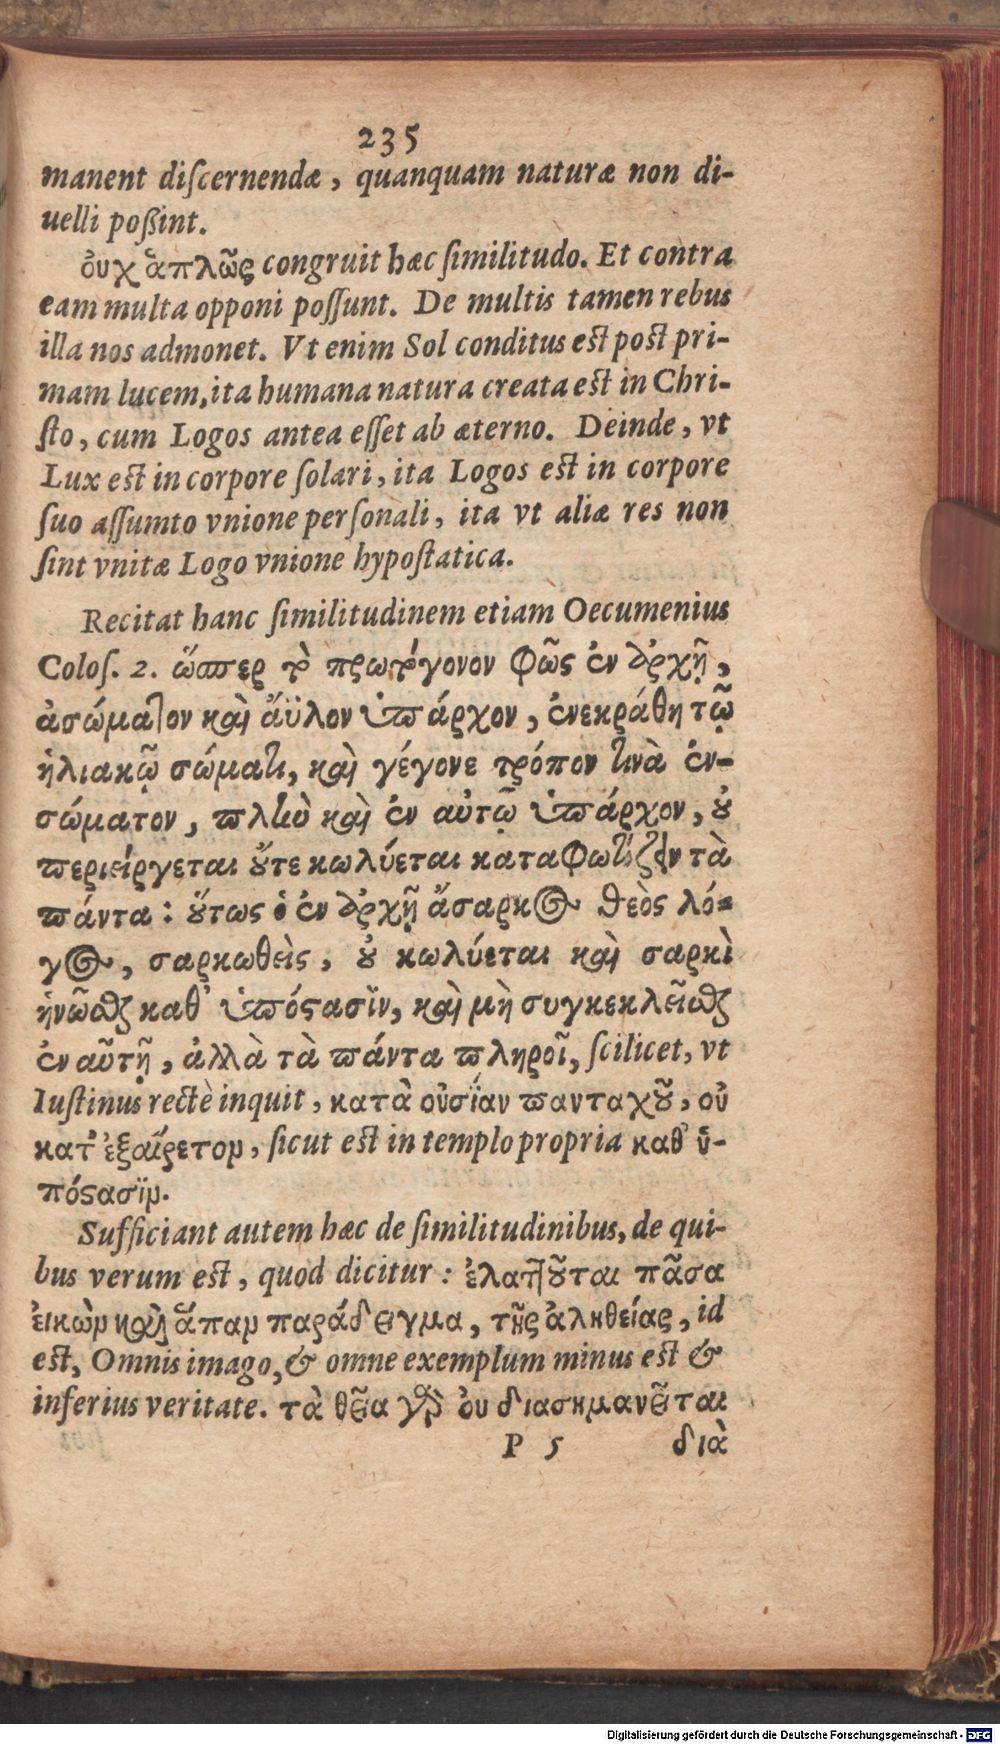 235
manent discernendæ, quanquam naturæ non di-
uelli poßint.
ὀυχ ἁπλῶς congruit hæc similitudo. Et contra
eam multa opponi possunt. De multis tamen rebus
illa nos admonet. Vt enim Sol conditus est post pri-
mam lucem, ita humana natura creata est in Chri-
sto, cum Logos antea esset ab æterno. Deinde, vt
Lux est in corpore solari, ita Logos est in corpore
suo assumto vnione personali, ita vt aliæ res non
sint vnitæ Logo vnione hypostatica.
Recitat hanc similitudinem etiam Oecumenius
Colos. 2. ὥσπερ τὸ πρωτόγονον φῶς ἐν ἀρχῇ,
ἀσώματον καὶ ἄϋλον ὑπάρχον, ἐνεκράθη τῷ
ἡλιακῷ σώματι, καὶ γέγονε τρόπον τινὰ ἐν-
σώματον, πλὴν καὶ ἐν αὐτῷ ὑπάρχον, ȣ
περιείργεται ȣ̓́τε κωλύεται καταφωτίζειν τὰ
πάντα: ȣ̔́τως ὁ ἐν ἀρχῇ ἄσαρκος θεὸς λό-
γος, σαρκωθεὶς, ȣ̓ κωλύεται καὶ σαρκὶ
ἡνῶσθαι καθ’ ὑπόςασϊν, καὶ μὴ συγκεκλεῖσθαι
ἐν αὐτῇ, ἀλλὰ τὰ πάντα πληροῖ, scilicet, vt
Iustinus rectè inquit, κατὰ οὐσίαν πανταχȣ͂, οὐ
κατ’ ἐξαίρετον, sicut est in templo propria καθ’ ὑ-
πόςασϊν.
Sufficiant autem hæc de similitudinibus, de qui-
bus verum est, quod dicitur: ἐλαττȣ͂ται πᾶσα
ἐικὼν καὶ ἅπαν παράδειγμα, τῆς ἀληθείας, id
est, Omnis imago, & omne exemplum minus est &
inferius veritate. τὰ θεῖα γὰρ ὀυ διασημανεῖται
P 5 διὰ
Digitalisierung gefördert durch die Deutsche Forschungsgemeinschaft - DFG